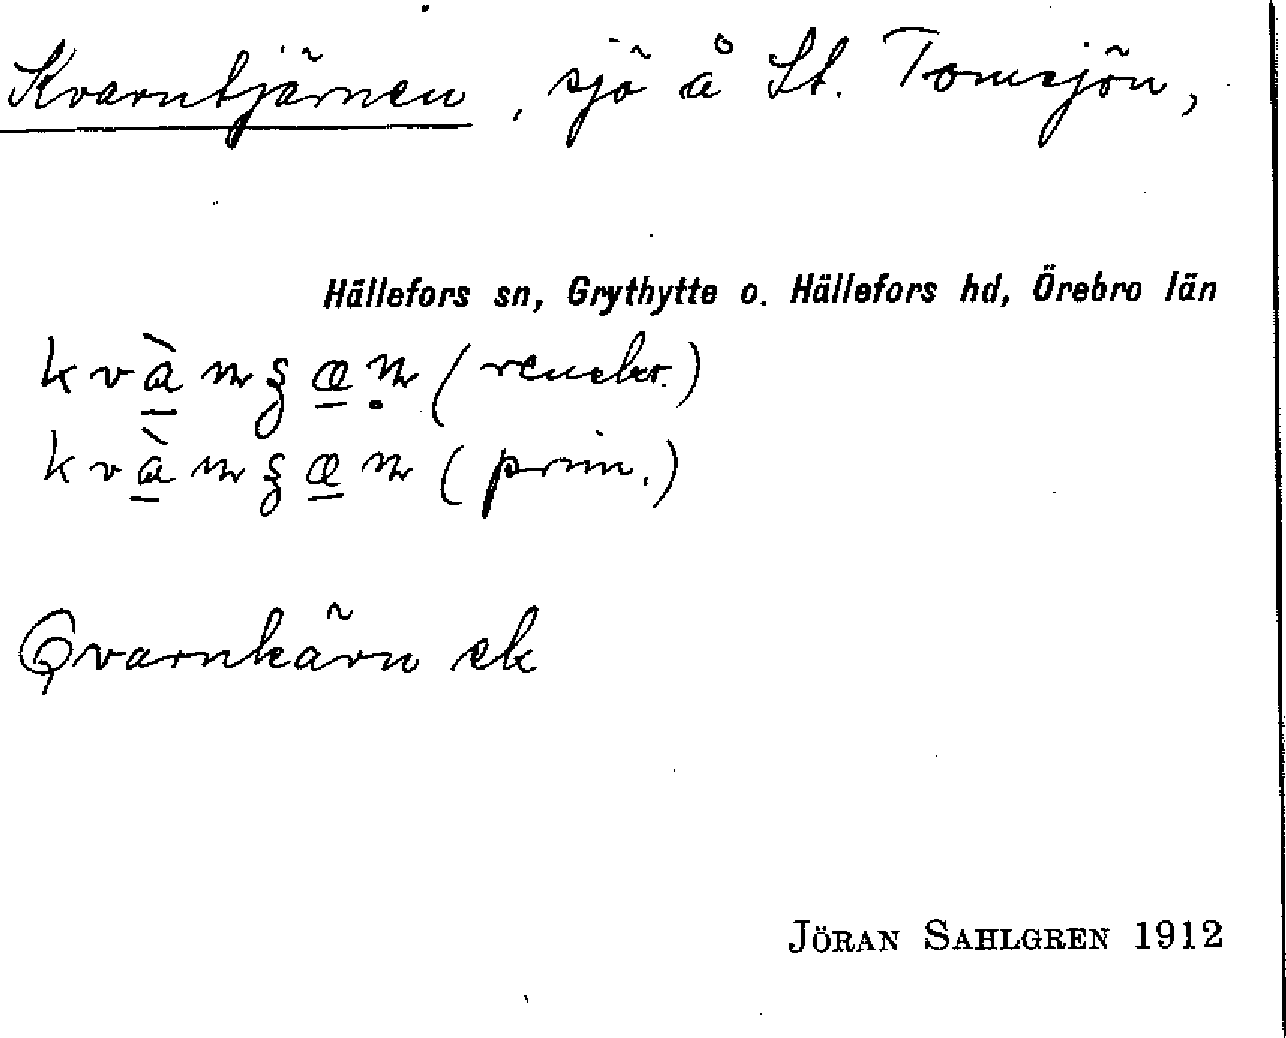 Kvarntjärnen, sjö å St. Tomsjön,
Hällefors sn, Grythytte o. Hällefors hd, Örebro län
(prim.)
Qvarnkärn ek
JÖRAN SAHLGREN 1912